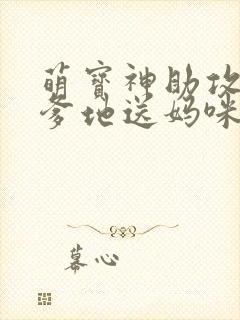 萌宝神助攻
爹地送妈咪
幕心